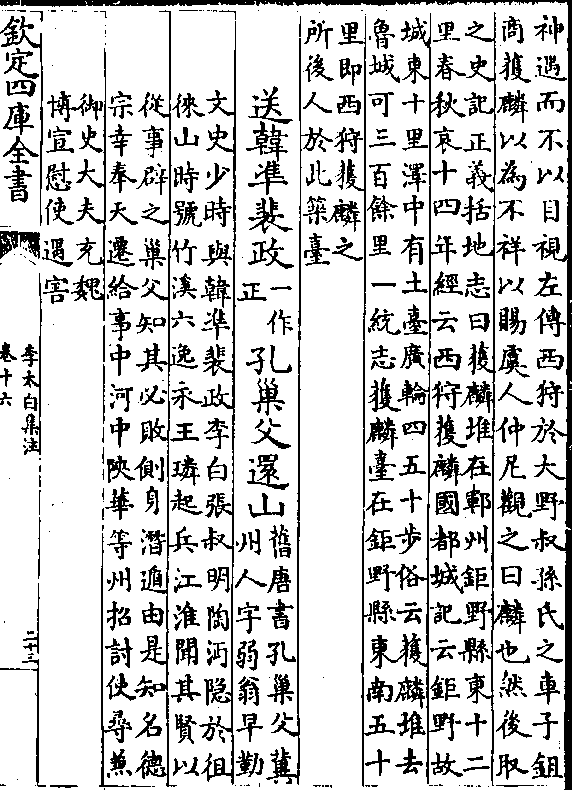 神遇而不以目視左傳西狩於大野叔孫氏之車子鉏
商獲麟以為不祥以賜虞人仲尼觀之曰麟也然後取
之史記正義括地志曰獲麟堆在鄆州鉅野縣東十二
里春秋哀十四年經云西狩獲麟國都城記云鉅野故
城東十里澤中有土臺廣輪四五十步俗云獲麟堆去
魯城可三百餘里一統志獲麟臺在鉅野縣東南五十
里即西狩獲麟之
所後人於此築臺
送韓準裴政一作正孔巢父還山舊唐書孔巢父冀
州人字弱翁早勤
文史少時與韓準裴政李白張叔明陶沔隐於徂
徠山時號竹溪六逸永王璘起兵江淮聞其賢以
從事辟之巢父知其必敗側身潛遁由是知名德
宗幸奉天遷給事中河中陝華等州招討使尋兼
御史大夫充魏
博宣慰使遇害
欽定四庫全書
李太白集注
卷十六
二十三